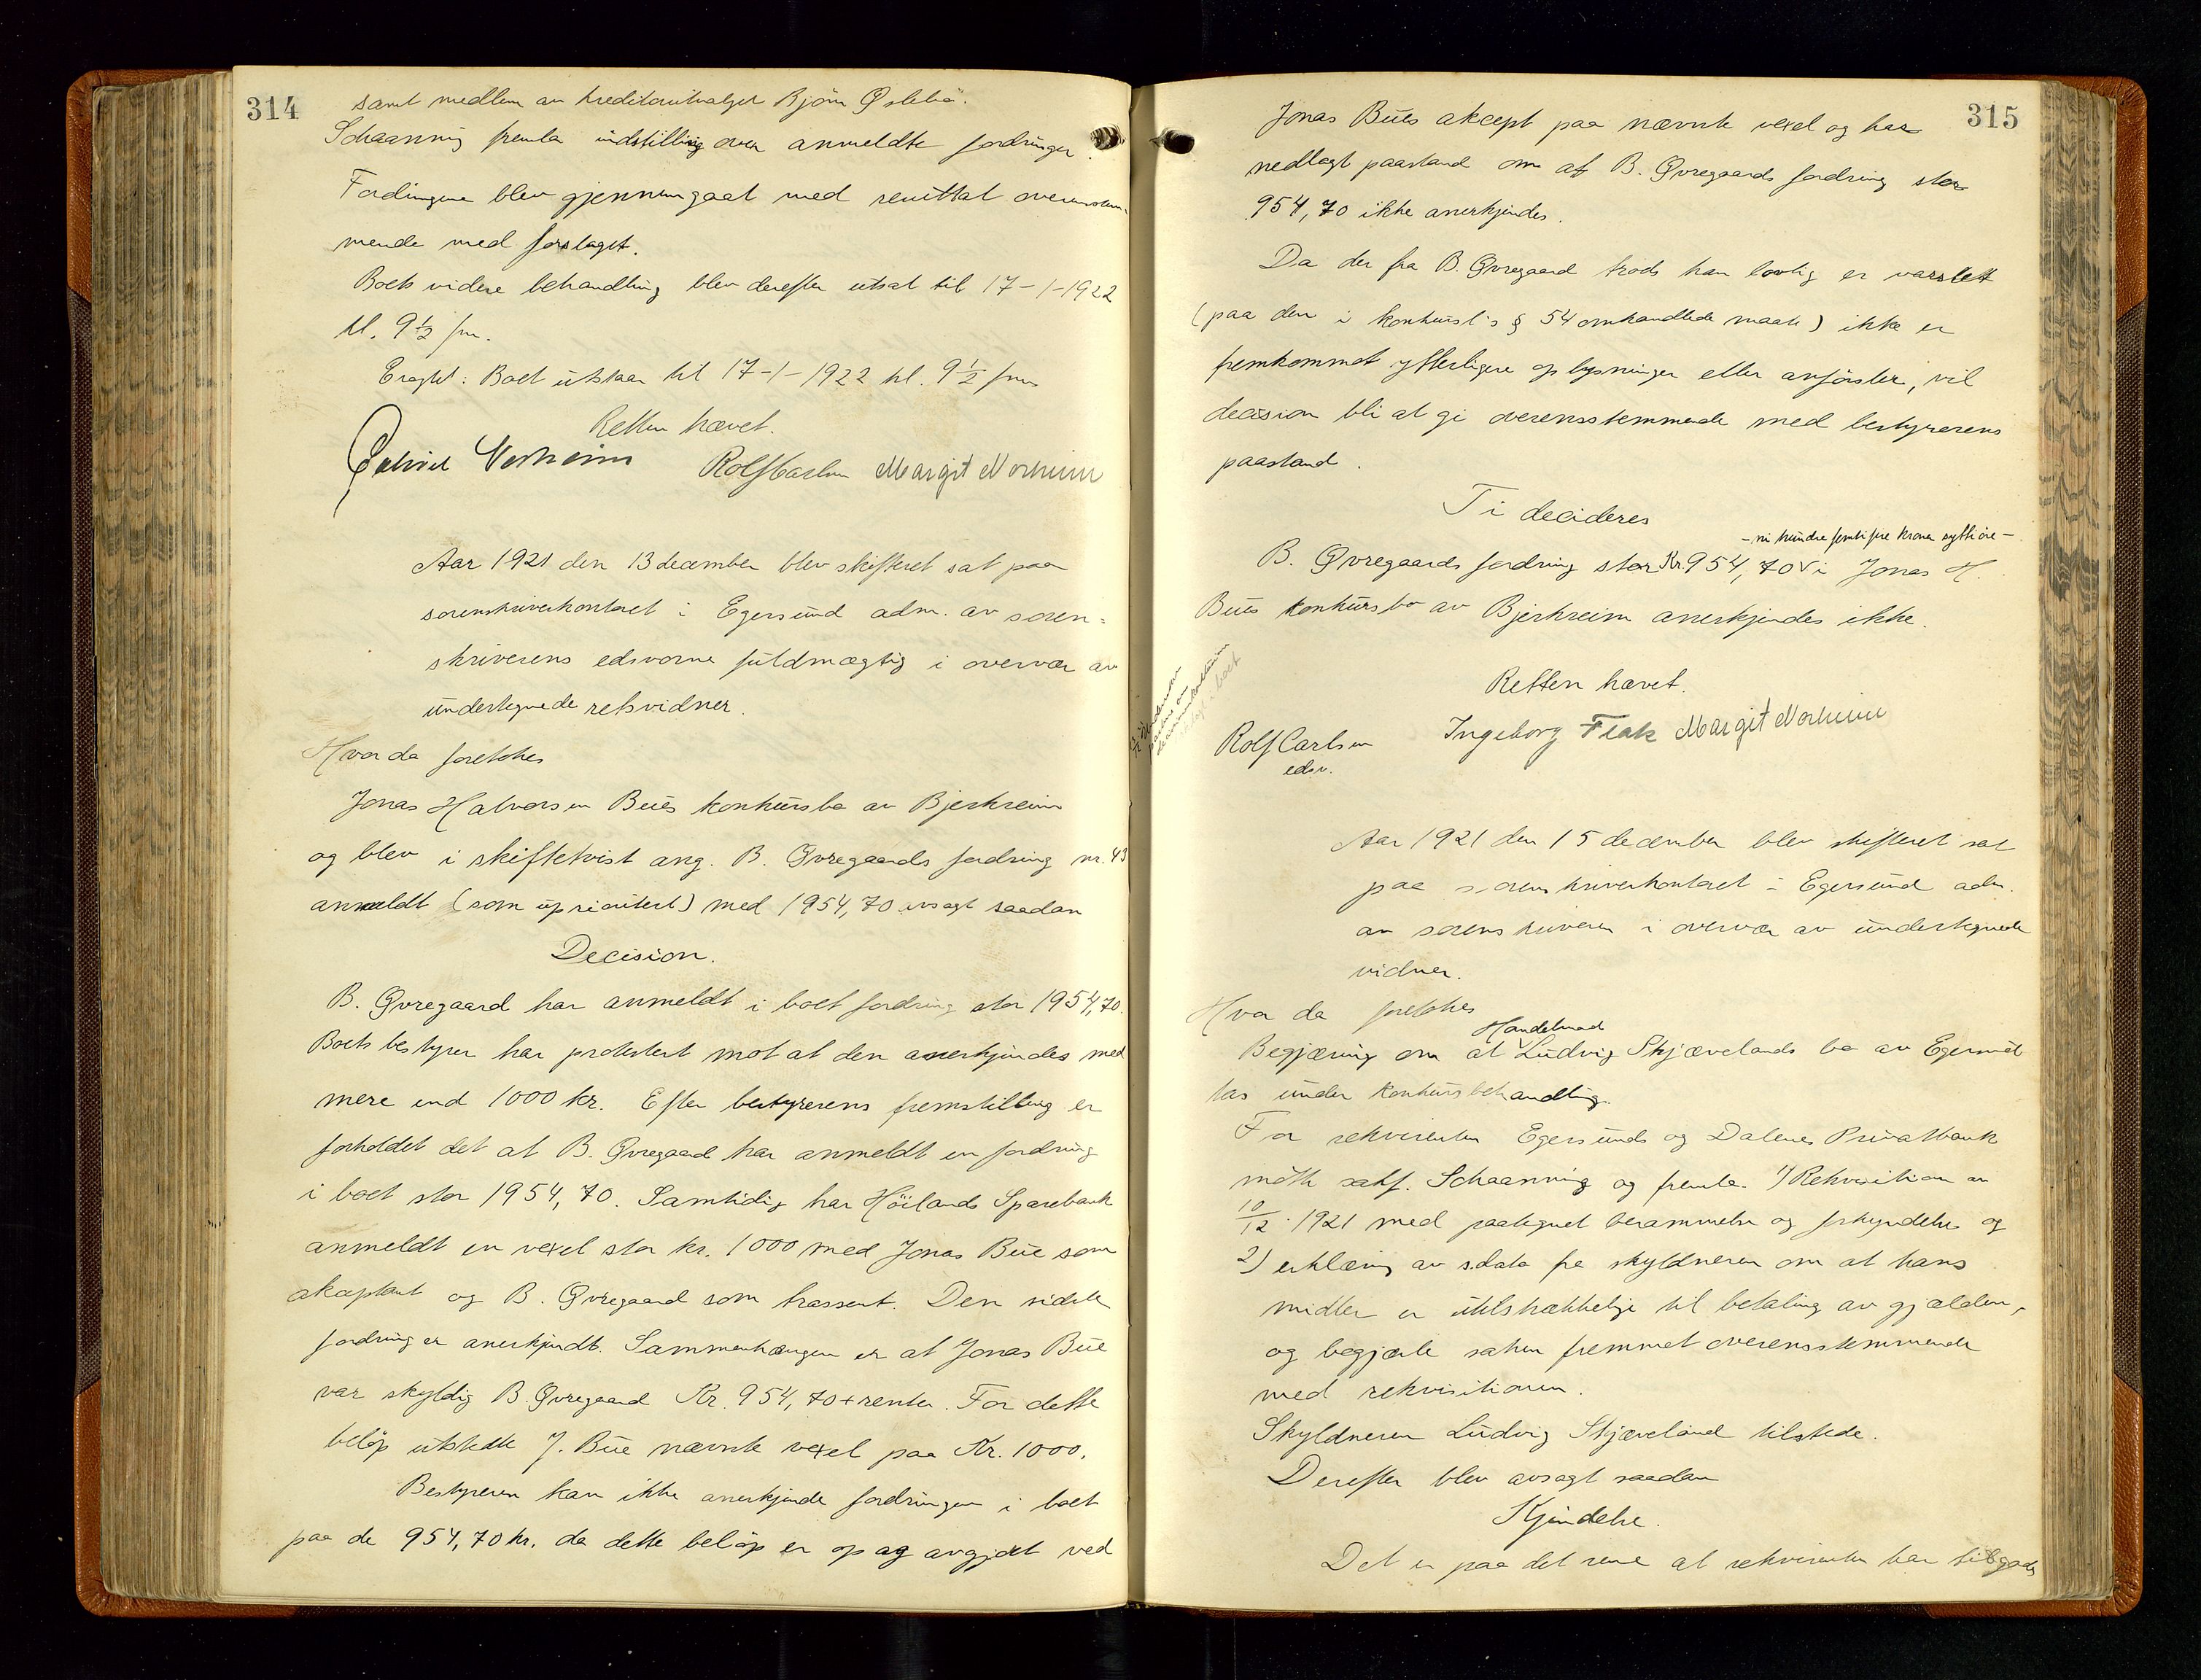 314
samt medlem av kreditorutvalget Bjørn Ørslebø.
Schaanning fremla indstilling over anmeldte fordringer.
Fordringene blev gjennemgaat med resultat overensstem-
mende med forslaget.
Boets videre behandling blev derefter utsat til 17-1-1922
kl. 9½ fm.
Eragtet: Boet utstaar til 17-1-1922 kl. 9½ fm
Retten hævet.
Rolf Carlsen Margit Norheim
Aar 1921 den 13 december blev skifteret sat paa
sorenskriverkontoret i Egersund adm. av soren-
skriverens edsvorne fuldmægtig i overvær av
undertegnede retsvidner.
Hvorda foretokes
Jonas Halvorsen Bues konkursbo av Bjerkreim
og blev i skiftetvist ang. B. Øvregaards fordring nr. 43
anmeldt (som uprioritert) med 1954,70 avsagt saadan
Decision.
B. Øvregaard har anmeldt i boet fordring stor 1954,70.
Boets bestyrer har protestert mot at den anerkjendes med
mere end 1000 kr. Efter bestyrerens fremstilling er
forholdet det at B. Øvregaard har anmeldt en fordring
i boet stor 1954,70. Samtidig har Höilands Sparebank
anmeldt en vexel stor kr. 1000 med Jonas Bue som
akceptant og B. Øvregaard som trassent. Den sidste
fordring er anerkjendt. Sammenhængen er at Jonas Bue
var skyldig B. Øvregaard Kr. 954,70 + renter. For dette
beløp utstedte J. Bue nævnte vexel paa Kr. 1000.
Bestyreren kan ikke anerkjende fordringen i boet
paa de 954,70 kr. da dette beløp er op og avgjort ved
315
Jonas Bues akcept paa nævnte vexel og har
nedlagt paastand om at B. Øvregaards fordring stor
954,70 ikke anerkjendes.
Da der fra B. Øvregaard trods han lovlig er varslett
(paa den i konkursl's § 54 omhandlede maate) ikke er
fremkommet ytterligere oplysninger eller anførsler, vil
decision bli at gi overensstemmende med bestyrerens
paastand.
Ti decideres
- ni hundre femti fire kroner sytti øre -
B. Øvregaards fordring stor Kr. 954,70 i Jonas H.
Bues konkursbo av Bjerkreim anerkjendes ikke.
Retten hævet.
Rolf Carlsen Ingeborg Flak Margit Norheim
edsv.
Aar 1921 den 15 december blev skifteret sat
paa sorenskriverkontoret i Egersund adm.
av sorenskriveren i overvær av undertegnede
vidner.
Hvor da foretokes
Handelsmand
Begjæring om at Ludvig Skjævelands bo av Egersund
tas under konkursbehandling.
For rekvirenten Egersunds og Dalenes Privatbank
møtte sakf. Schaanning og fremla 1) Rekvisition av
10/12 1921 med paategnet berammelse og forkyndelse og
2) erklæring av s.dato fra skyldneren om at hans
midler er utilstrækkelige til betaling av gjælden,
og begjærte saken fremmet overensstemmende
med rekvisitionen.
Skyldneren Ludvig Skjæveland tilstede.
Derefter blev avsagt saadan
Kjendelse.
Det er paa det rene at rekvirenten har tilgode